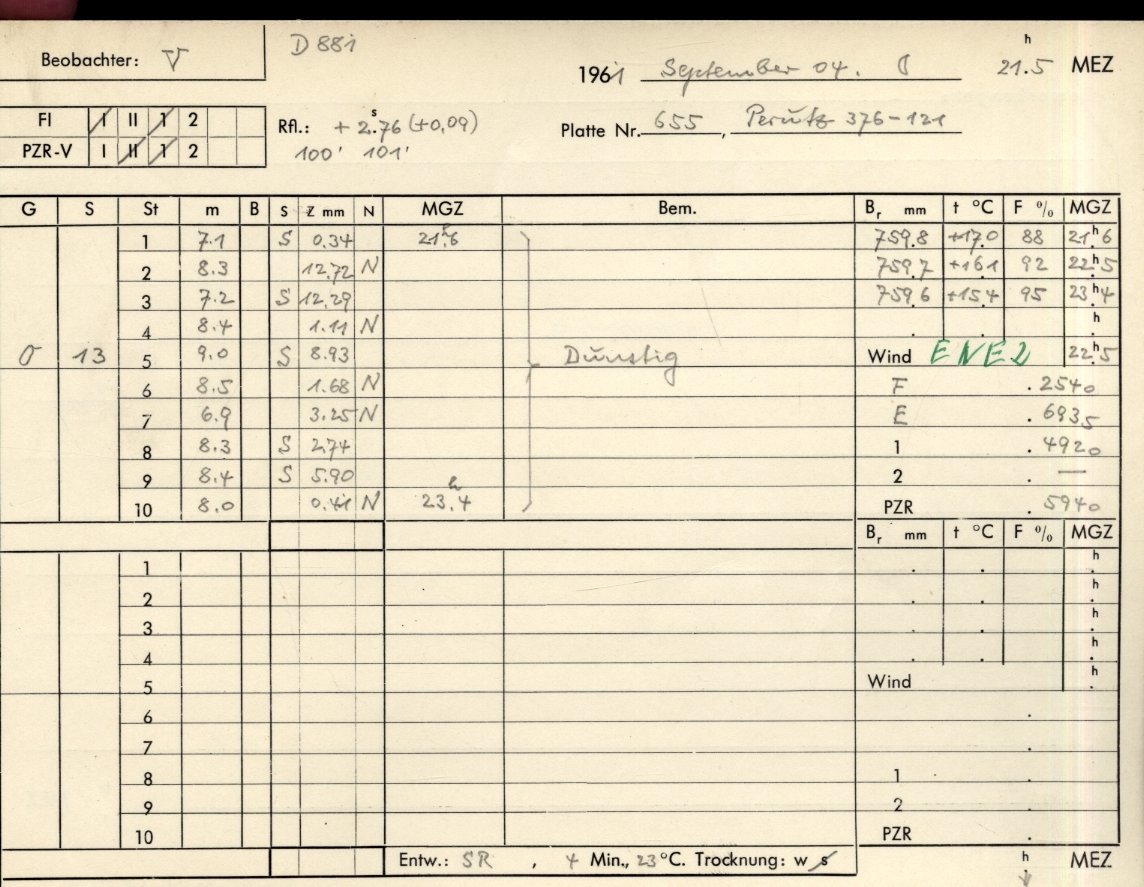 Beobachter: V D 881 1961 September 04. 21.5 h MEZ
FI I II 1 2 Rfl.: + 2.76 s (±0,09) Platte Nr. 655 , Perutz 376-121
PZR-V I II 1 2 100' 101'
G S St m B S Z mm N MGZ Bem. Br mm t °C F % MGZ
1 7.1 S 0.34 21h6 759.8 +17.0 88 21h6
2 8.3 12.72 N 759.7 +16.1 92 22h5
3 7.2 S 12.29 759.6 +15.4 95 23h4
4 8.4 1.11 N . . h
O 13 5 9.0 S 8.93 Dunstig Wind ENE2 22h5
6 8.5 1.68 N F . 2540
7 6.9 3.25 N E . 6935
8 8.3 S 2.74 1 . 4920
9 8.4 S 5.90 2 . —
10 8.0 0.41 N 23h.4 PZR . 5940
Br mm t °C F % MGZ
1 . . h
2 . . h
3 . . h
4 . . h
5 Wind h
6 .
7 .
8 1 .
9 2 .
10 PZR .
Entw.: SR , 4 Min., 23 °C. Trocknung: w s h MEZ